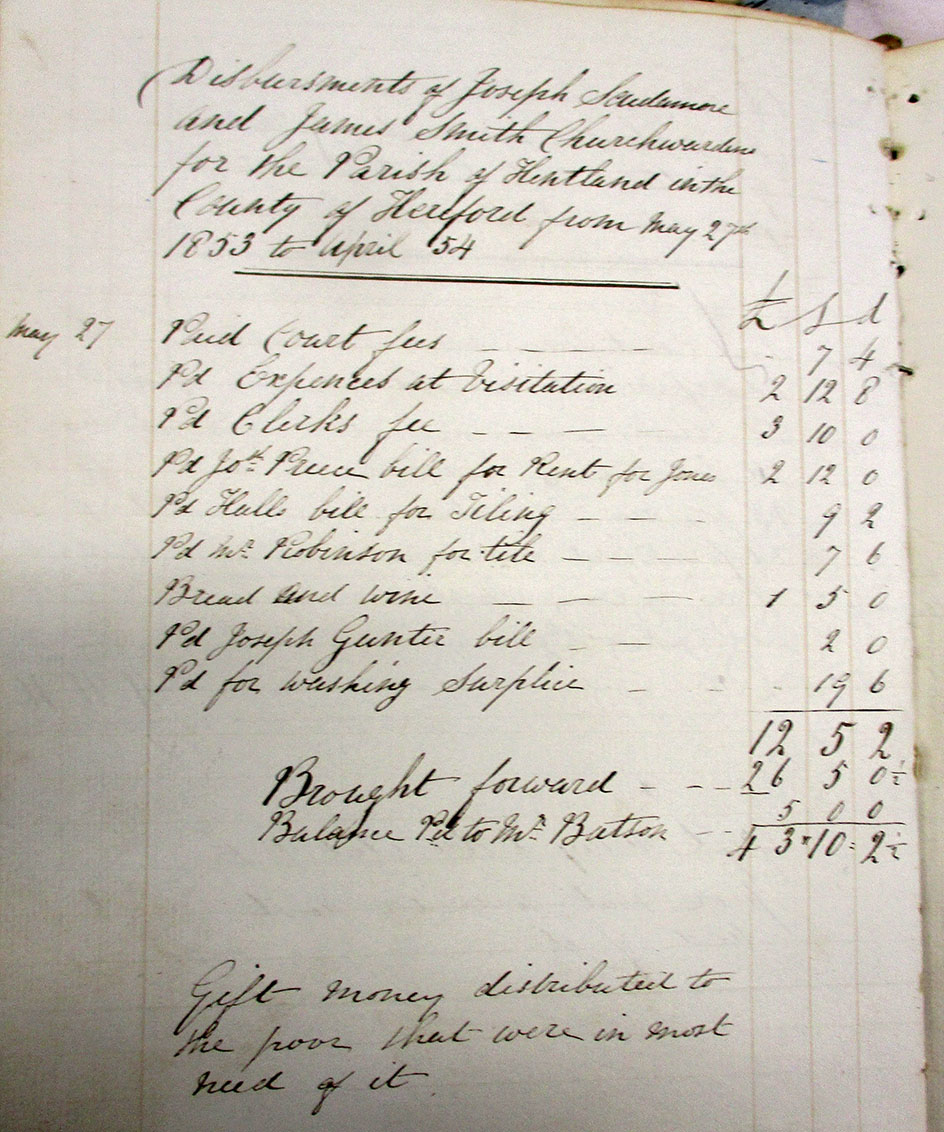 Disbursments of Joseph Scudamore
and James Smith Churchwardens
for the Parish of Hentland in the
County of Hereford from May 27th
1853 to April 54
£ s d
May 27 Paid Court fees 7 4
Pd Expences at Visitation 2 12 8
Pd Clerks fee 3 10 0
Pd Jos. Preece bill for Rent for Jones 2 12 0
Pd Halls bill for Tiling 9 2
Pd Mr Robinson for tile 7 6
Bread and wine 1 5 0
Pd Joseph Gunter bill 2 0
Pd for washing Surplice 19 6
12 5 2
Brought forward 26 5 0½
Balance Pd to Mr Batson 5 0 0
43 10 2½
Gift money distributed to
the poor that were in most
need of it